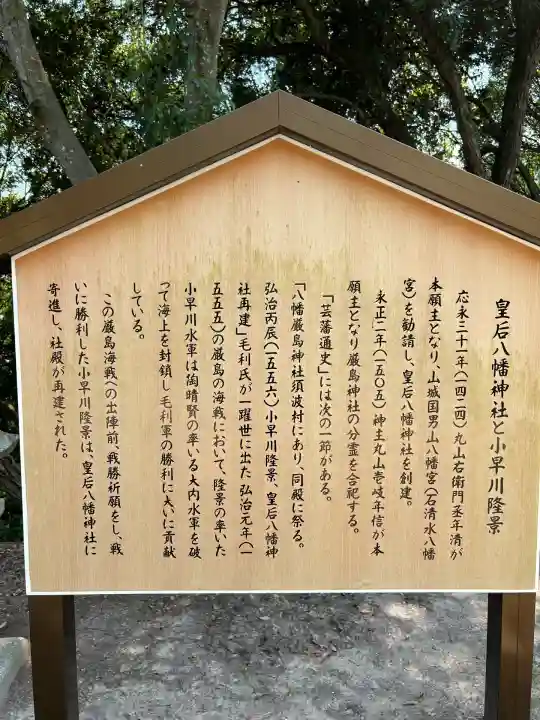 皇后八幡神社と小早川隆景
応永三十一年（一四二四）丸山右衛門丞年清が
本願主となり、山城国男山八幡宮（石清水八幡
宮）を勧請し、皇后八幡神社を創建。
永正二年（一五〇五）神主丸山壱岐年信が本
願主となり厳島神社の分霊を合祀する。
「芸藩通史」には次の一節がある。
「八幡厳島神社須波村にあり、同殿に祭る。
弘治丙辰（一五五六）小早川隆景、皇后八幡神
社再建」毛利氏が一躍世に出た弘治元年（一
五五五）の厳島の海戦において、隆景の率いた
小早川水軍は陶晴賢の率いる大内水軍を破
って海上を封鎖し毛利軍の勝利に大いに貢献
している。
この厳島海戦への出陣前、戦勝祈願をし、戦
いに勝利した小早川隆景は、皇后八幡神社に
寄進し、社殿が再建された。